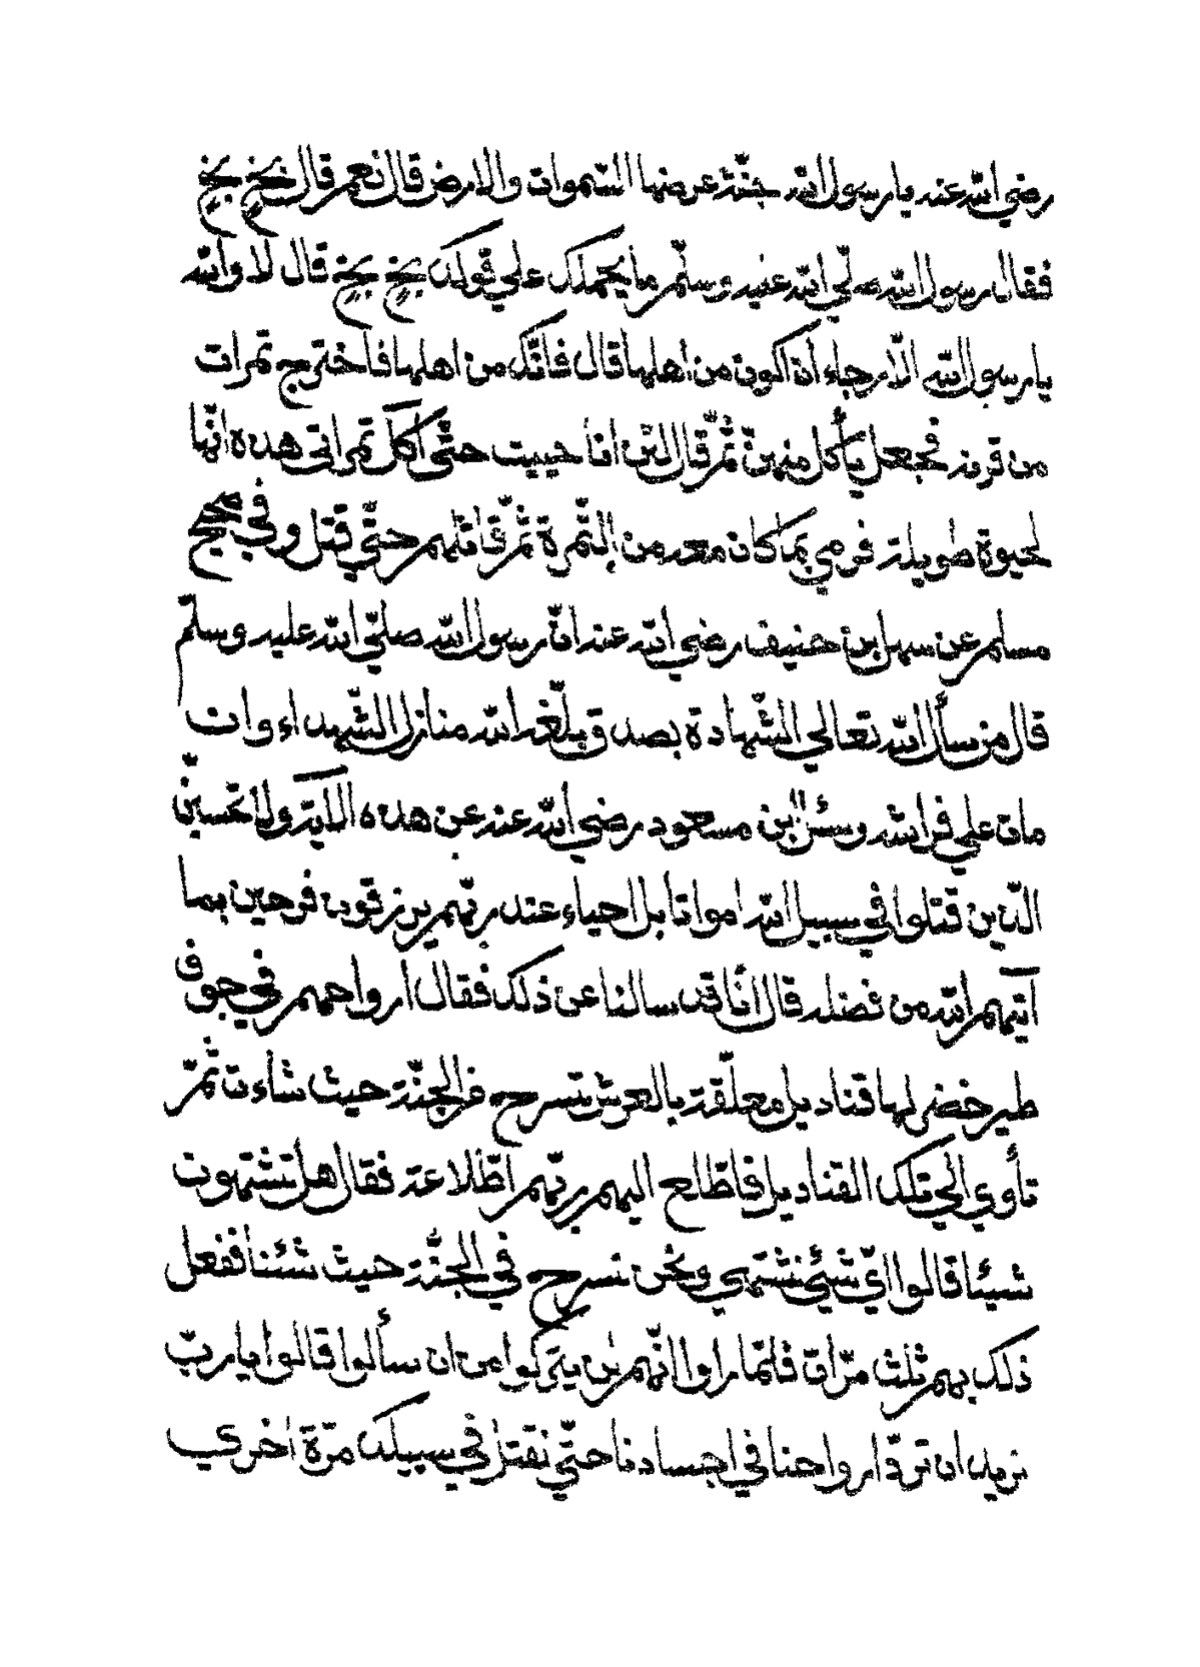 رضي الله عنه يا رسول الله جنّة عرضها السّموات والارض قال نعم قال بخٍ بخٍ
فقال رسول الله صلّي الله عليه وسلّم ما يحملك علي قولك بخٍ بخٍ قال لا والله
يا رسول الله الّا رجاء أن اكون من اهلها قال فانّك من اهلها فاخترج تمرات
من قرنه فجعل يأكل منهنّ ثمّ قال لئن انا حييت حتّي آكل تمراتي هذه انّها
لحيوة طويلة فرمي بما كان معه من التّمرة ثمّ قاتلهم حتّي قتل وفي صحيح
مسلم عن سهل بن حنيف رضي الله عنه انّ رسول الله صلّي الله عليه وسلّم
قال من سأل الله تعالي الشّهادة بصدق بلّغه الله منازل الشّهداء وان
مات علي فراشه وسئل ابن مسعود رضي الله عنه عن هذه الآية ولا تحسبنّ
الّذين قتلوا في سبيل الله امواتا بل احياء عند ربّهم يرزقون فرحين بما
آتيهم الله من فضله قال انّا قد سالنا عن ذلك فقال ارواحهم في جوف
طير خضر لها قناديل معلّقة بالعرش تسرح في الجنّة حيث شاءت ثمّ
تأوي الي تلك القناديل فاطّلع اليهم ربّهم اطّلاعة فقال هل تشتهون
شيئا قالوا ايّ شئي نشتهي ونحن نسرح في الجنّة حيث شئنا ففعل
ذلك بهم ثلث مرّات فلمّا راوا انّهم لن يتركوا من ان سألوا قالوا يا ربّ
نريد ان تردّ ارواحنا في اجسادنا حتّي نقتل في سبيلك مرّة اخري